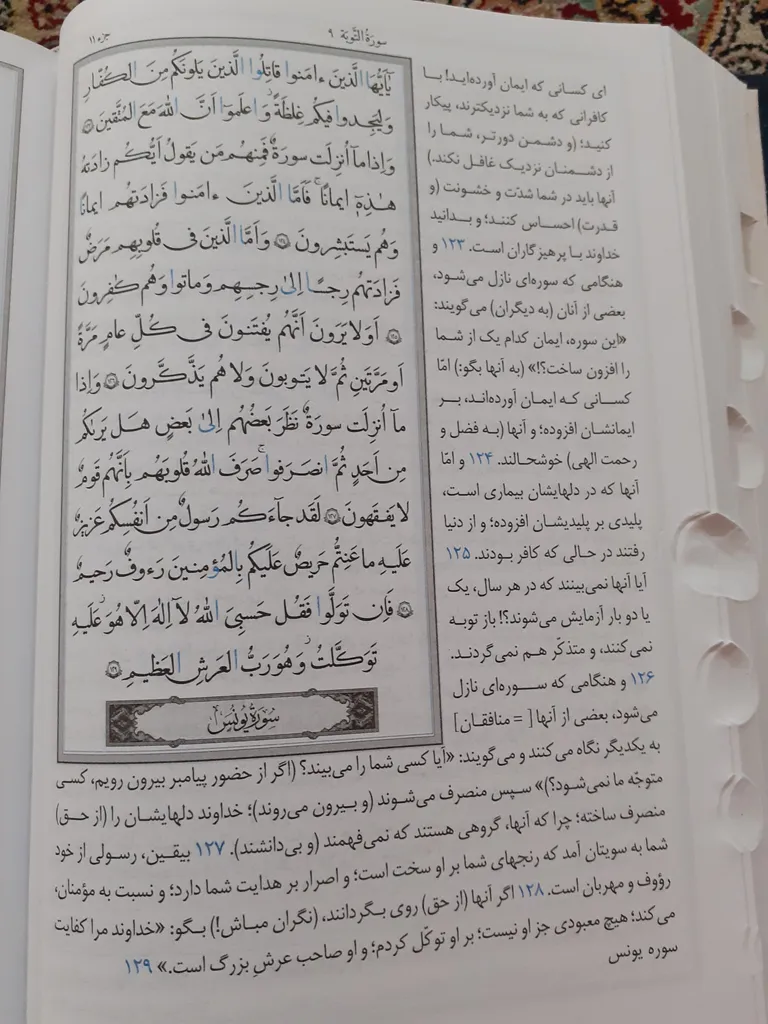 سورَةُ التَّوبَة ٩
جزء ١١
يٰٓأَيُّهَا الَّذينَ ءامَنوا قاتِلُوا الَّذينَ يَلونَكُم مِنَ الكُفّارِ
وَليَجِدوا فيكُم غِلظَةً ۚ وَاعلَموا أَنَّ اللهَ مَعَ المُتَّقينَ ﴿١٢٣﴾
وَإِذا ما أُنزِلَت سورَةٌ فَمِنهُم مَن يَقولُ أَيُّكُم زادَتهُ
هٰذِهِ إيمانًا ۚ فَأَمَّا الَّذينَ ءامَنوا فَزادَتهُم إيمانًا
وَهُم يَستَبشِرونَ ﴿١٢٤﴾ وَأَمَّا الَّذينَ في قُلوبِهِم مَرَضٌ
فَزادَتهُم رِجسًا إِلىٰ رِجسِهِم وَماتوا وَهُم كٰفِرونَ
﴿١٢٥﴾ أَوَلا يَرَونَ أَنَّهُم يُفتَنونَ في كُلِّ عامٍ مَرَّةً
أَو مَرَّتَينِ ثُمَّ لا يَتوبونَ وَلا هُم يَذَّكَّرونَ ﴿١٢٦﴾ وَإِذا
ما أُنزِلَت سورَةٌ نَظَرَ بَعضُهُم إِلىٰ بَعضٍ هَل يَرىٰكُم
مِن أَحَدٍ ثُمَّ انصَرَفوا ۚ صَرَفَ اللهُ قُلوبَهُم بِأَنَّهُم قَومٌ
لا يَفقَهونَ ﴿١٢٧﴾ لَقَد جاءَكُم رَسولٌ مِن أَنفُسِكُم عَزيزٌ
عَلَيهِ ما عَنِتُّم حَريصٌ عَلَيكُم بِالمُؤمِنينَ رَءوفٌ رَحيمٌ
﴿١٢٨﴾ فَإِن تَوَلَّوا فَقُل حَسبِيَ اللهُ لا إِلٰهَ إِلّا هُوَ ۖ عَلَيهِ
تَوَكَّلتُ ۖ وَهُوَ رَبُّ العَرشِ العَظيمِ ﴿١٢٩﴾
سورَةُ يونُس
ای کسانی که ایمان آورده‌اید! با
کافرانی که به شما نزدیکترند، پیکار
کنید؛ (و دشمن دورتر، شما را
از دشمنان نزدیک غافل نکند.)
آنها باید در شما شدّت و خشونت (و
قدرت) احساس کنند؛ و بدانید
خداوند با پرهیزگاران است. ۱۲۳ و
هنگامی که سوره‌ای نازل می‌شود،
بعضی از آنان (به دیگران) می‌گویند:
«این سوره، ایمان کدام یک از شما
را افزون ساخت؟!» (به آنها بگو:) امّا
کسانی که ایمان آورده‌اند، بر
ایمانشان افزوده؛ و آنها (به فضل و
رحمت الهی) خوشحالند. ۱۲۴ و امّا
آنها که در دلهایشان بیماری است،
پلیدی بر پلیدیشان افزوده؛ و از دنیا
رفتند در حالی که کافر بودند. ۱۲۵
آیا آنها نمی‌بینند که در هر سال، یک
یا دو بار آزمایش می‌شوند؟! باز توبه
نمی‌کنند، و متذکّر هم نمی‌گردند.
۱۲۶ و هنگامی که سوره‌ای نازل
می‌شود، بعضی از آنها [= منافقان]
به یکدیگر نگاه می‌کنند و می‌گویند: «آیا کسی شما را می‌بیند؟ (اگر از حضور پیامبر بیرون رویم، کسی
متوجّه ما نمی‌شود؟)» سپس منصرف می‌شوند (و بیرون می‌روند)؛ خداوند دلهایشان را (از حق)
منصرف ساخته؛ چرا که آنها، گروهی هستند که نمی‌فهمند (و بی‌دانشند). ۱۲۷ بیقین، رسولی از خود
شما به سویتان آمد که رنجهای شما بر او سخت است؛ و اصرار بر هدایت شما دارد؛ و نسبت به مؤمنان،
رؤوف و مهربان است. ۱۲۸ اگر آنها (از حق) روی بگردانند، (نگران مباش!) بگو: «خداوند مرا کفایت
می‌کند؛ هیچ معبودی جز او نیست؛ بر او توکّل کردم؛ و او صاحب عرشِ بزرگ است.» ۱۲۹
سوره یونس